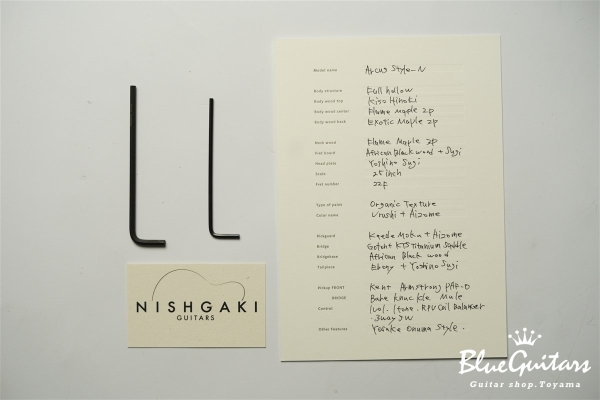 Model name Arcus Style-N
Body structure Full hollow
Body wood top Kiso Hinoki
Body wood center Flame Maple 2p
Body wood back Exotic Maple 2p
Neck wood Flame Maple 2p
Fret board African Black wood + Sugi
Head plate Yoshino Sugi
Scale 25 inch
Fret number 22F
Type of paint Organic Texture
Color name Urushi + Aizome
Pickguard Kaede Moku + Aizome
Bridge Gotoh KTS Titanium Saddle
Bridgebase African Black wood
Tailpiece Ebony + Yoshino Sugi
Pickup FRONT Kent Armstrong PAF-0
BRIDGE Bare Knuckle Mule
Control 1vol. 1tone. Coil Balancer
. 3way SW
Other Features Yutaka Onuma Style.
NISHGAKI
GUITARS
BlueGuitars
Guitar shop.Toyama